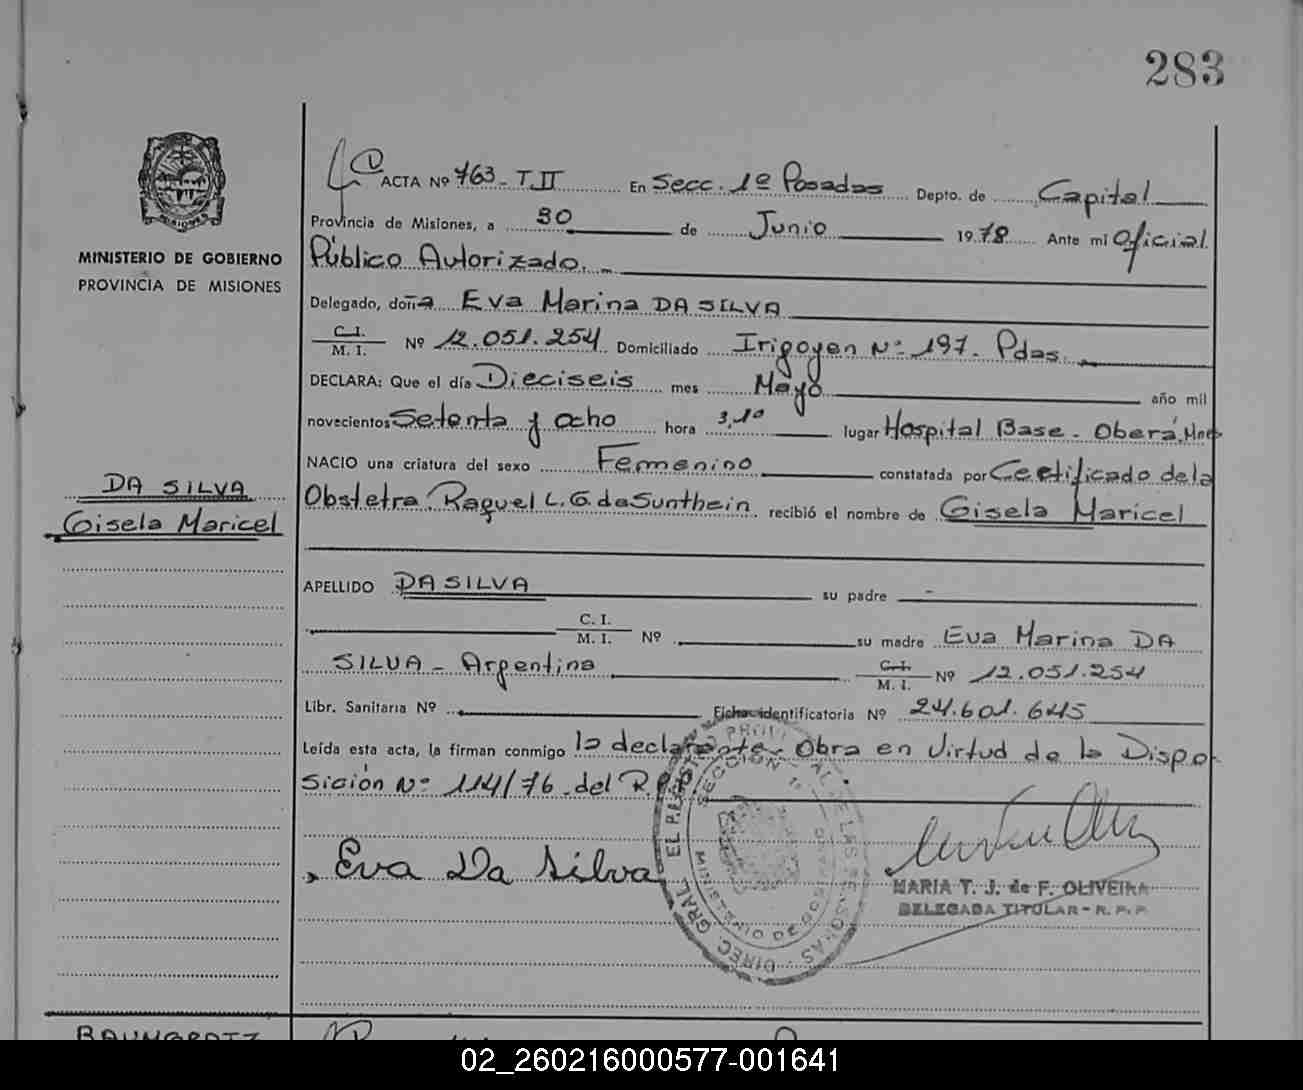 283
ACTA Nº 763 - T II En Secc. 1º Posadas Depto. de Capital
Provincia de Misiones, a 30 de Junio 1978 Ante mi Oficial
MINISTERIO DE GOBIERNO
PROVINCIA DE MISIONES
Público Autorizado.-
Delegado, doña Eva Marina DA SILVA
C. I.
M. I. Nº 12.051.254 Domiciliado Irigoyen Nº 197. Pdas.
DECLARA: Que el día Dieciseis mes Mayo año mil
novecientos Setenta y ocho hora 3,10 lugar Hospital Base - Oberá, Mnes
NACIO una criatura del sexo Femenino constatada por Certificado de la
DA SILVA
Gisela Maricel
Obstetra Raquel L. G. de Sunthein recibió el nombre de Gisela Maricel
APELLIDO DA SILVA su padre -
C. I.
M. I. Nº su madre Eva Marina DA
SILVA - Argentina C. I.
M. I. Nº 12.051.254
Libr. Sanitaria Nº Ficha identificatoria Nº 24.601.645
Leída esta acta, la firman conmigo la declarante - Obra en Virtud de la Dispo-
sición Nº 114/76 del R.P.
Eva Da Silva
MARIA T. J. de F. OLIVEIRA
DELEGADA TITULAR - R. P. P.
DIREC. GRAL. DE LAS PERSONAS
SECCION 1º
02_260216000577-001641